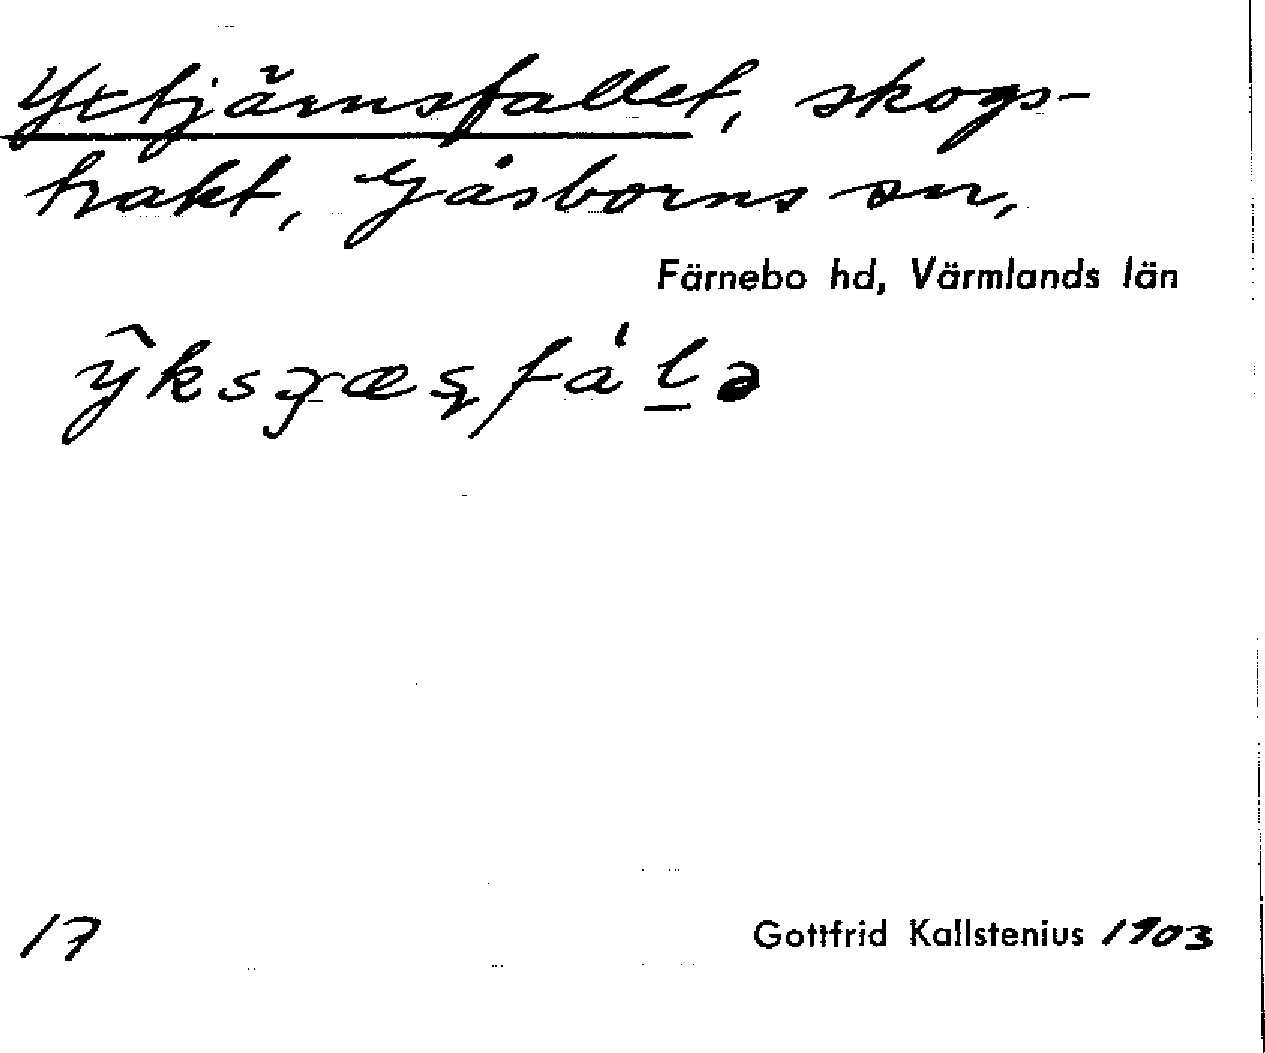 Yxtjärnsfallet, skogs-
trakt, Gåsborns sn,
Färnebo hd, Värmlands län
17
Gottfrid Kallstenius 1903